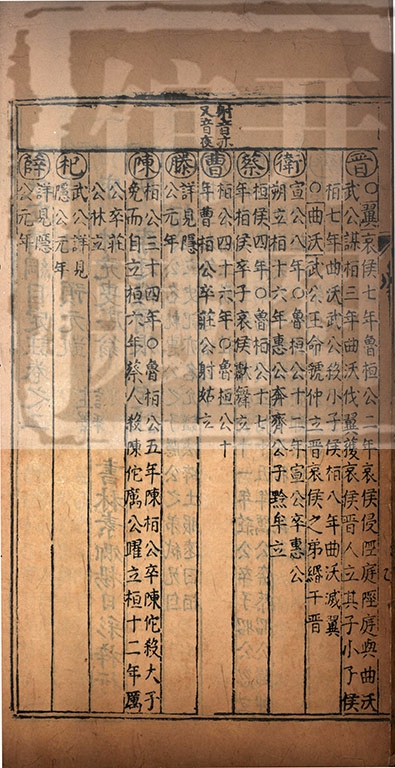 晉〇翼哀侯七年魯桓公二年哀侯侵陘庭陘庭與曲沃
武公謀柏三年曲沃伐翼獲哀侯晉人立其子小子侯
柏七年曲沃武公殺小子侯柏八年曲沃滅翼
〇曲沃武公王命虢仲立晉哀侯之弟緡于晉
衛宣公八年〇魯桓十二年宣公卒惠公
朔立柏十六年惠公奔齊公子黔牟立
蔡桓侯四年〇魯柏公十七
年柏侯卒子哀侯獻舞立
射音亦
又音夜
曹柏公四十六年〇魯柏公十
年曹柏公卒莊公射姑立
滕詳見隱
公元年
陳柏公三十四年〇魯柏公五年陳柏公卒陳佗殺大子
免而自立柏六年蔡人殺陳佗厲公躍立桓十二年厲
公卒莊
公林立
杞武公詳見
隱公元年
薛詳見隱
公元年